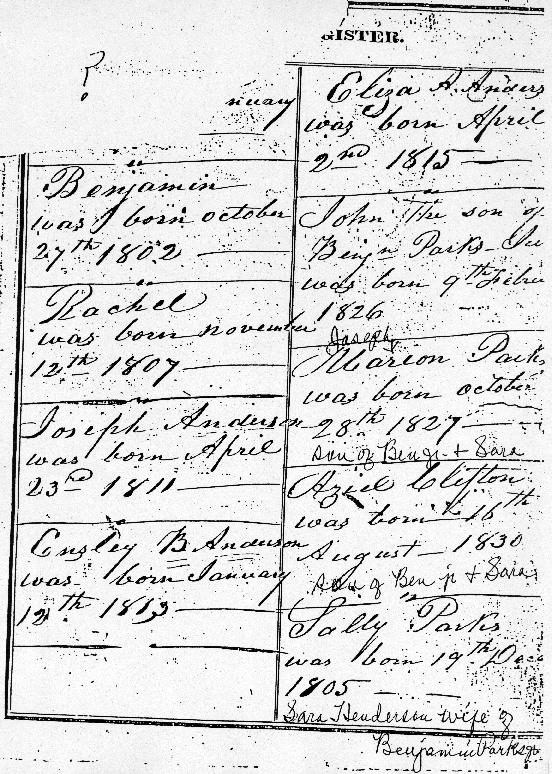 GISTER.
?
nuary
Benjamin
was born october
27th 1802
Rachel
was born november
12th 1807
Joseph Anderson
was born April
23rd 1811
Ensley B Anderson
was born January
12th 1813
Eliza A. Anders
was born April
2nd 1815
John The son of
Benjn Parks
was born 9th Febru
1826
Joseph
Marion Park
was born october
28th 1827
son of Benj + Sara
Aziel Clifton
was born 16th
August 1830
son of Benj + Sara
Sally Parks
was born 19th Dec
1805
Sara Henderson wife of
Benjamin Parks